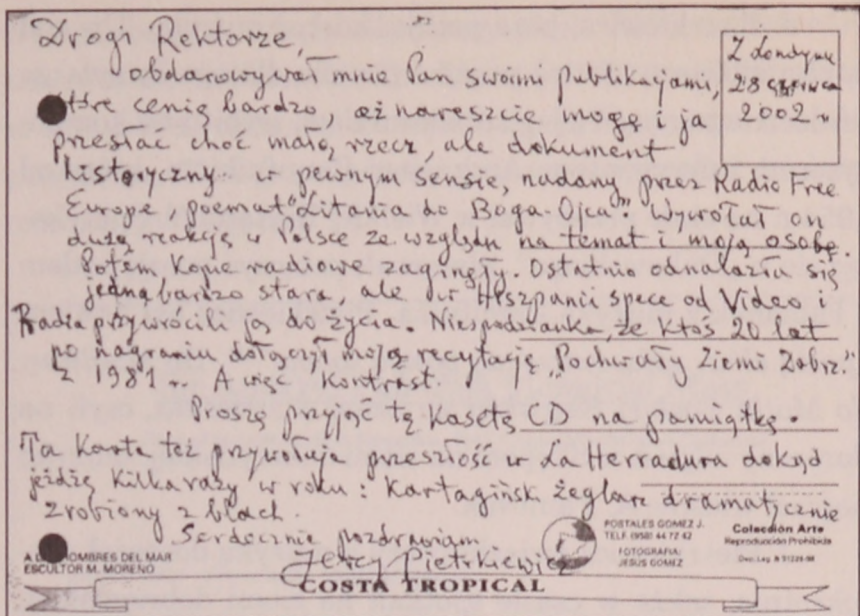 Drogi Rektorze,
obdarowywał mnie Pan swoimi publikacjami,
które cenię bardzo, aż nareszcie mogę i ja
przesłać choć małą rzecz, ale dokument
historyczny w pewnym sensie, nadany przez Radio Free
Europe, poemat "Litania do Boga-Ojca". Wywołał on
dużą reakcję w Polsce ze względu na temat i moją osobę.
Potem kopie radiowe zaginęły. Ostatnio odnalazła się
jedna bardzo stara, ale w Hiszpanii spece od Video i
Radia przywrócili ją do życia. Niespodzianka, że ktoś 20 lat
po nagraniu dołączył moją recytację „Pochwały Ziemi Dobrz."
z 1981 r. A więc kontrast.
Proszę przyjąć tę kasetę CD na pamiątkę.
Ta karta też przywołuje przeszłość w La Herradura dokąd
jeżdżę kilka razy w roku: Kartagiński żeglarz dramatycznie
zrobiony z blach.
Serdecznie pozdrawiam
Jerzy Pietrkiewicz
Z Londynu
28 czerwca
2002 r.
HOMBRES DEL MAR
ESCULTOR M. MORENO
POSTALES GOMEZ J.
TELF. (958) 44 72 42
FOTOGRAFIA:
JESUS GOMEZ
Colección Arte
Reproducción Prohibida
COSTA TROPICAL